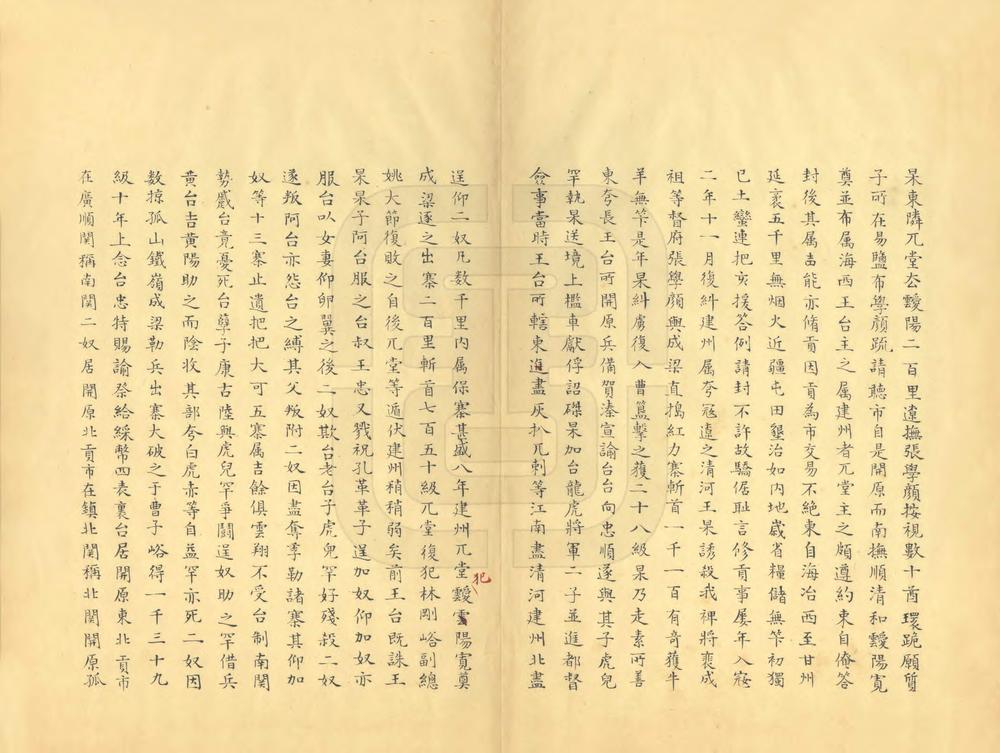 杲東隣兀堂去靉陽二百里遠撫張學顏按視數十酋環跪願質
子所在易鹽布學顏疏請聽市自是開原而南撫順清和靉陽寬
奠並布属海西王台主之属建州者兀堂主之頗遵約東自俺答
封後其属吉能亦脩貢因貢為市交易不絶東自海冶西至甘州
延袤五千里無烟火近疆屯田墾治如内地歲省糧儲無筭初獨
巳土蠻連把亥援答例請封不許故驕倨耻言修貢事屢年入寇
二年十一月後糾建州属夸寇遠之清河王杲誘殺我裨將裴成
祖等督府張學顏與成梁直搗紅力寨斬首一千一百有竒獲牛
羊無筭是年杲糾虜復入曹簋擊之獲二十八級杲乃走素所善
東夸長王台所開原兵備賀溱宣諭台台向忠順遂與其子虎兒
罕執杲送境上檻車獻俘詔磔杲加台龍虎將軍二子並進都督
僉事當時王台所轄東進盡灰扒兀剌等江南盡清河建州北盡
逞仰二奴凡数千里内属保寨甚盛八年建州兀堂犯靉陽寬奠
成梁逐之出寨二百里斬首七百五十級兀堂復犯林剛峪副總
姚大節復敗之自後兀堂等遁伏建州稍稍弱矣前王台既誅王
杲杲子阿台服之台叔王忠又戮祝孔革革子逞加奴仰加奴亦
服台以女妻仰卵翼之後二奴欺台老台子虎兒罕好殘殺二奴
遂叛阿台亦怨台之縛其父叛附二奴因盡奪季勒諸寨其仰加
奴等十三寨止遺把把大可五寨属吉餘俱雲翔不受台制南関
勢蹙台竟憂死台孽子康古陸與虎兒罕爭鬪逞奴助之罕借兵
黄台吉黄陽助之而陰收其部夸白虎赤等自益罕亦死二奴因
数掠孤山鐵嶺成梁勒兵出寨大破之于曹子峪得一千三十九
級十年上念台忠特賜諭祭給綵幣四表裏台居開原東北貢市
在廣順関稱南関二奴居開原北貢市在鎮北関稱北関開原孤